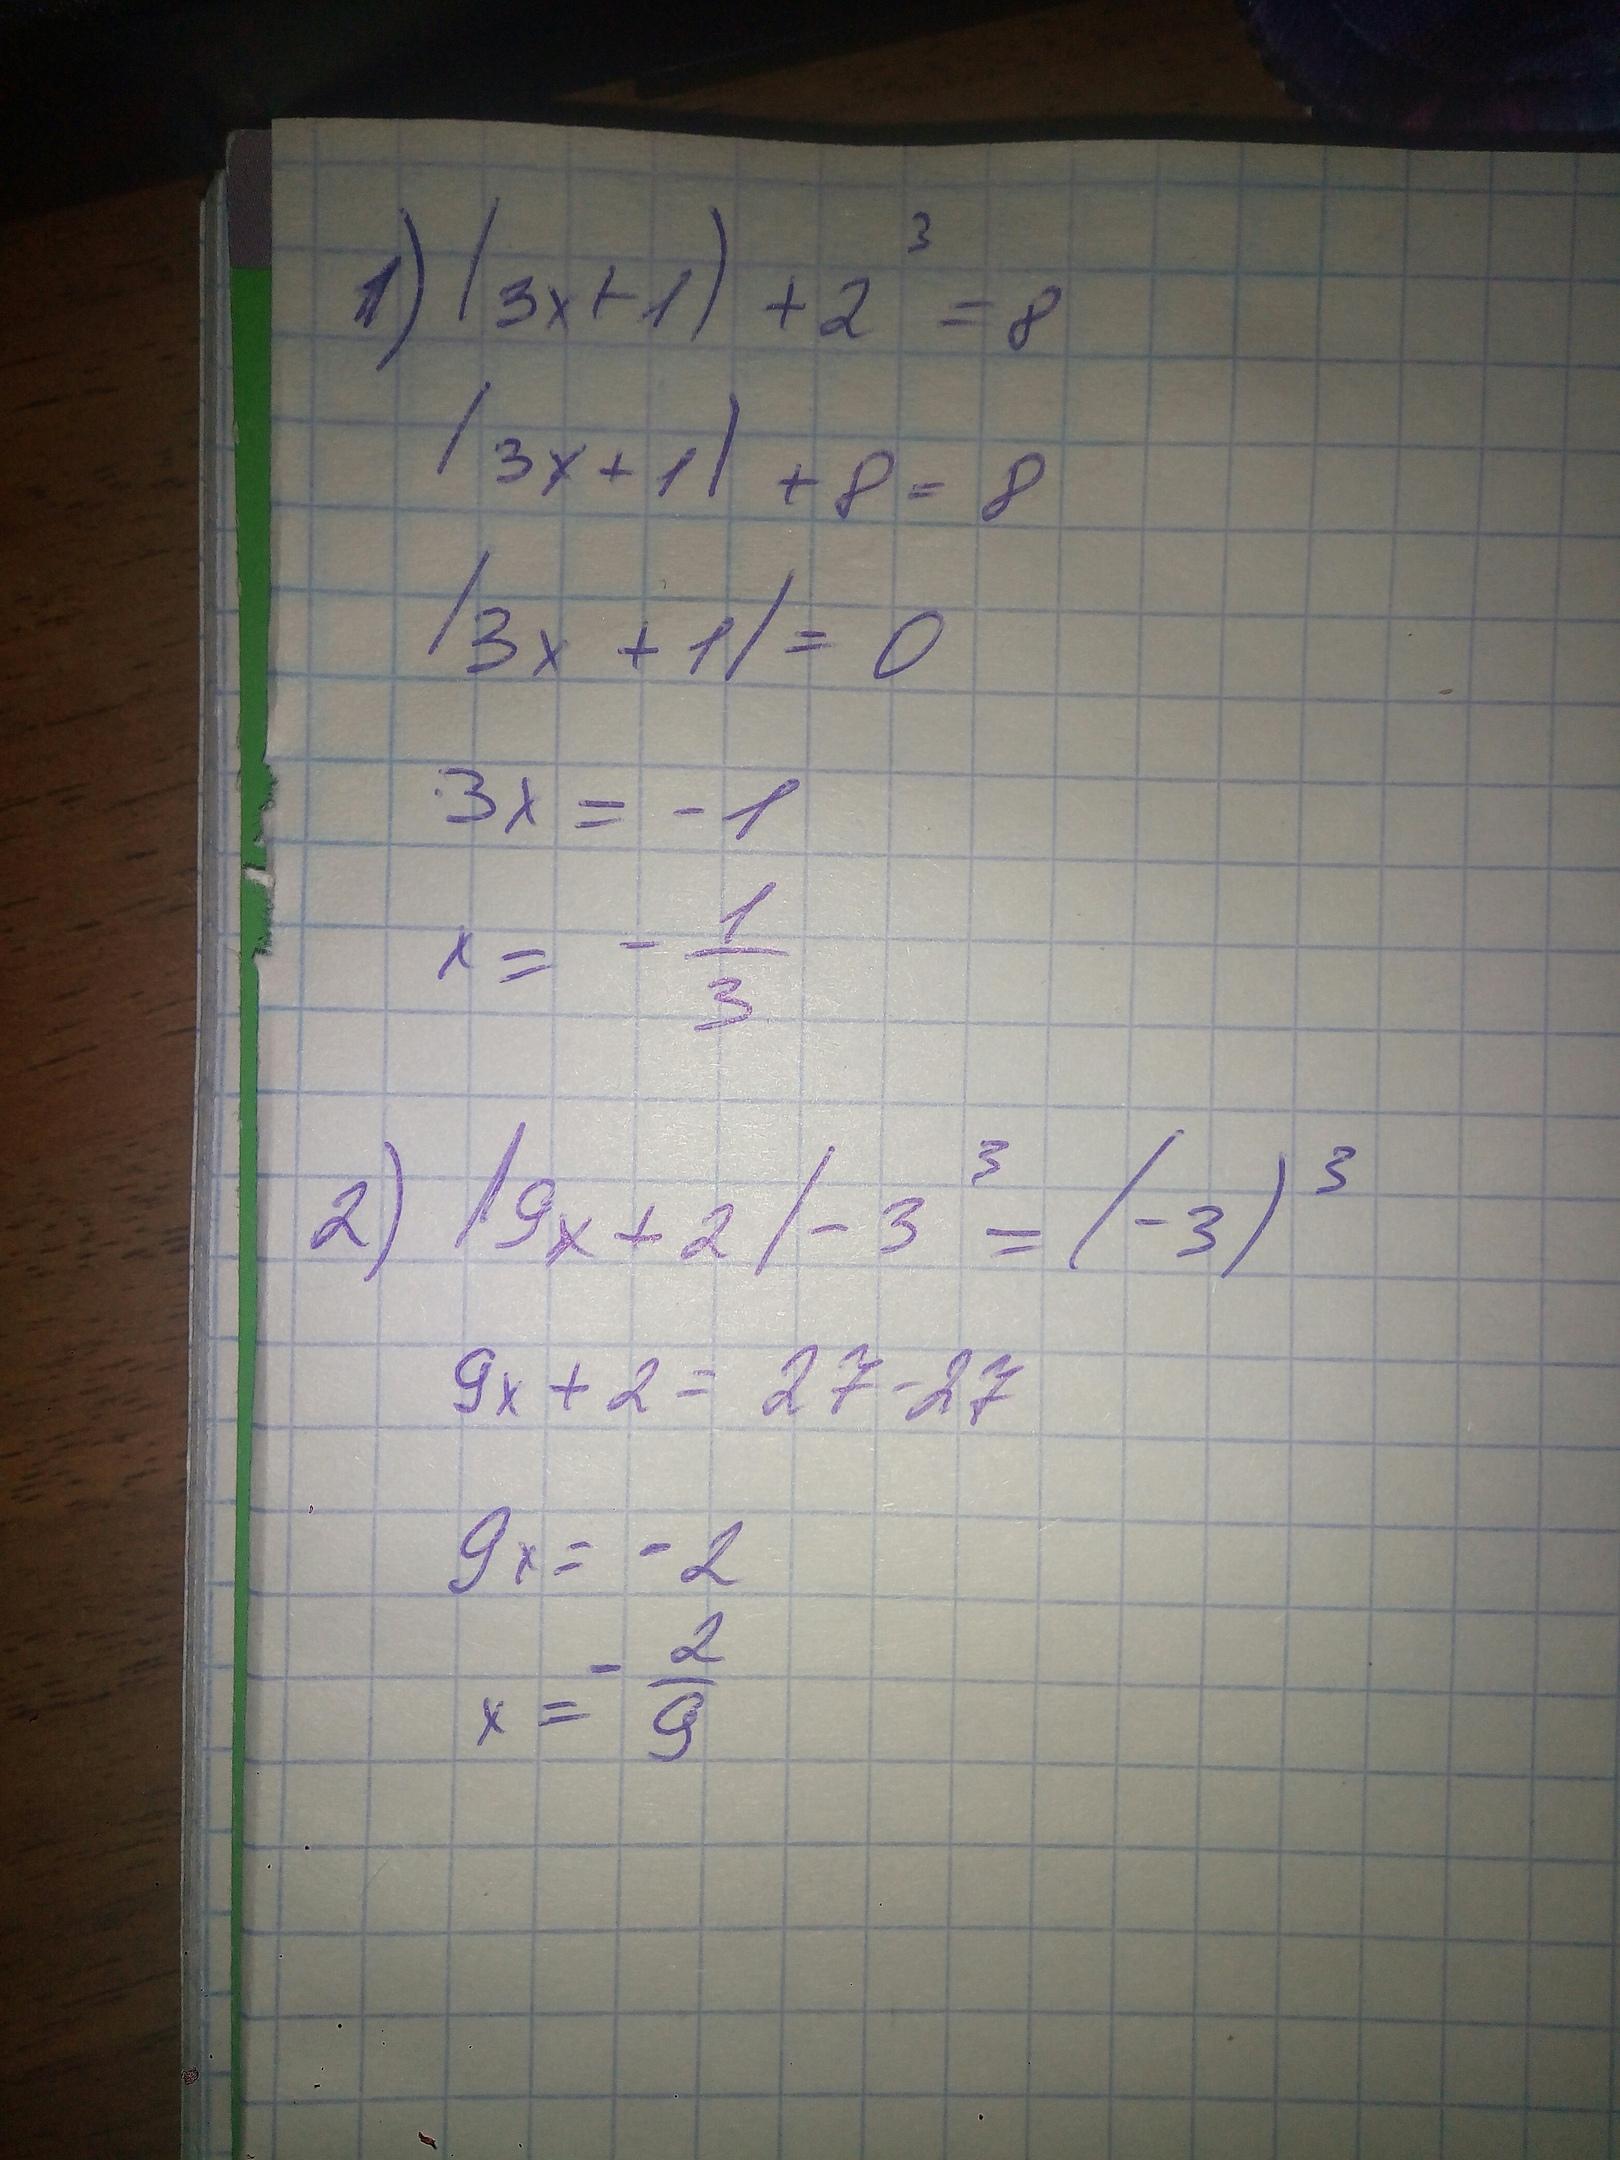 1) |3x+1| + 2³ = 8
|3x+1| + 8 = 8
|3x + 1| = 0
3x = - 1
x = - 1/3
2) |9x+2| - 3³ = (-3)³
9x + 2 = 27 - 27
9x = - 2
x = - 2/9